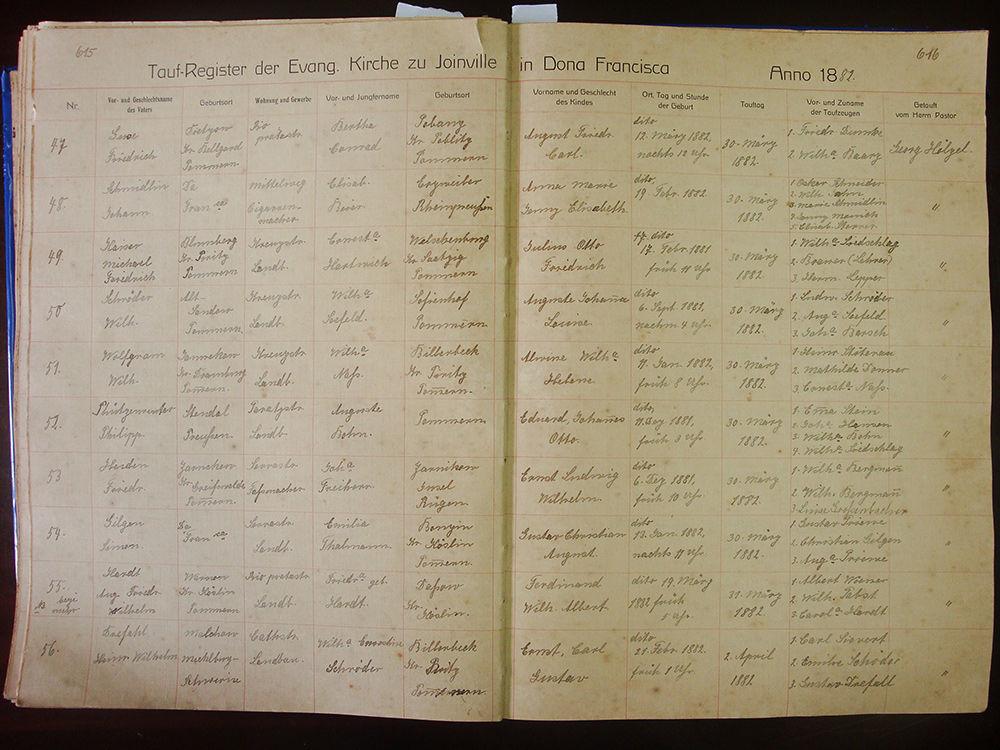 615
616
Tauf-Register der Evang. Kirche zu Joinville in Dona Francisca Anno 1882.
Nr.
Vor- und Geschlechtsname des Vaters
Geburtsort
Wohnung und Gewerbe
Vor- und Jungfername
Geburtsort
Vorname und Geschlecht des Kindes
Ort, Tag und Stunde der Geburt
Tauftag
Vor- und Zuname der Taufzeugen
Getauft vom Herrn Pastor
47.
Friedrich
Kr. Bellgard
Pommern
Rio
Bertha
Conrad
Pommern
August Friedr.
Carl.
dito
12. März 1882,
nachts 12 Uhr.
30. März
1882.
2. Wilh.a Baarz
Georg Hölzel
48.
Schmidlin
Johann
Da
Franca
Mittelweg
Cigarren-
macher
Elisab.
Beier
Rheinpreußen
Anna Marie
Fanny Elisabeth
dito,
19. Febr. 1882
30. März
1882.
1. Oskar Schneider
3. Marie Schmidlin
"
49.
Kaiser
Michael
Friedrich
Blumberg
Kr. Piritz
Pommern
Kreuzstr.
Landb.
Ernest.a
Hartwich
Kr. Saatzig
Pommern
Julius Otto
Friedrich
dito
17. Febr. 1881
früh 11 Uhr
30. März
1882.
1. Wilh.a Liedschlag
2. Boaner (Lehrer)
"
50
Schröder
Wilh.
Alt-
Pommern.
Kreuzstr.
Landb.
Wilh.a
Seefeld.
Pommern.
Auguste Johanna
Louise.
dito
6. Sept. 1881,
nachm. 4 Uhr.
30. März
1882.
1. Ludw. Schröder
2. Aug.a Seefeld
3. Joh.a Barsch
"
51.
Wolfgram
Wilh.
Kr. Dramburg
Pommern.
Kreuzstr.
Landb.
Wilh.a
Nass.
Billerbeck
Kr. Piritz
Pommern.
Alvine Wilh.a
Helene.
dito
11. Jan. 1882,
früh 8 Uhr.
30. März
1882.
2. Mathilde Donner
3. Ernest.a Nass.
52.
Philipp.
Stendal
Preußen.
Landb.
Auguste
Bohn.
Pommern.
Eduard, Johannes
Otto.
dito,
11. Dez. 1881,
früh 3 Uhr
30. März
1882.
1. Emma Stein
2. Joh.a Hansen
3. Wilh.a Bohn
4. Wilh.a Liedschlag
"
53
Heiden
Friedr.
Kr. Greifswalde
Pommern.
Serrastr.
Faßmacher
Joh.a
Freihorn.
Garnikow
Insel
Rügen.
Ernst Ludwig
Wilhelm.
dito
6. Dez. 1881,
früh 10 Uhr.
30. März
1882.
1. Wilh.a Bergmann
2. Wilh. Bergmann
"
54.
Gilgen
Simon.
Da
Franca
Serrastr.
Landb.
Emilia
Thalmann.
Benzin
Kr. Köslin
Pommern.
Gustav Christian
August.
dito
13. Jan. 1882,
nachts 11 Uhr.
30. März
1882.
1. Gustav Priewe
2. Christian Gilgen
3. Aug.a Priewe
"
55.
Hardt
Aug. Friedr.
Wilhelm
Kr. Köslin
Pommern
Landb.
Friedr.a geb.
Hardt.
Kr.
Köslin.
Ferdinand
Wilh. Albert
dito 19. März
1882 früh
5 Uhr.
31. März
1882.
1. Albert Wiener
2. Wilh. Pabst
3. Carol.a Hardt
"
56.
Heinr. Wilhelm
Malchow
Mecklbrg-
Schwerin
Landbau.
Wilh.a Ernestine
Schröder
Billerbeck
Kr. Piritz
Pommern.
Ernst, Carl
Gustav
dito
21. Febr. 1882.
früh 1 Uhr.
2. April
1882
1. Carl Sievert
2. Emilie Schröder
"